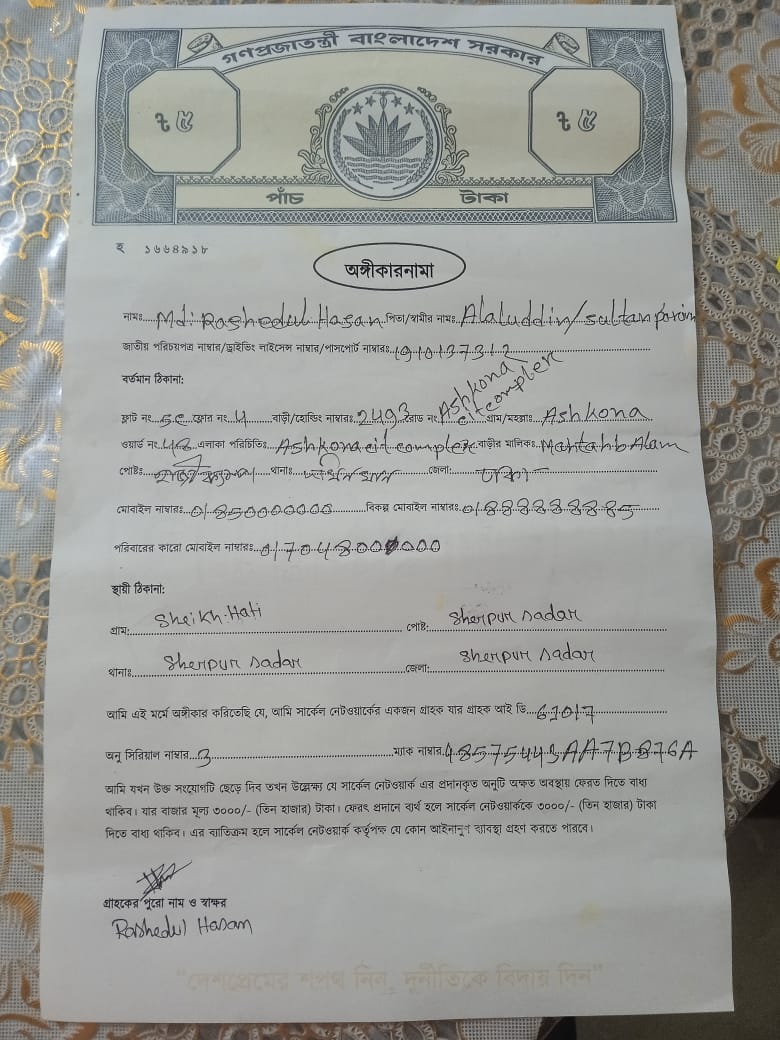 গণপ্রজাতন্ত্রী বাংলাদেশ সরকার
৳ ৫ ৳ ৫
পাঁচ টাকা
হ ১৬৬৪৯১৮
অঙ্গীকারনামা
নামঃ Md: Rashedul Hasan পিতা/স্বামীর নামঃ Alaluddin/Sultan
জাতীয় পরিচয়পত্র নাম্বার/ড্রাইভিং লাইসেন্স নাম্বার/পাসপোর্ট নাম্বারঃ 1910137312
বর্তমান ঠিকানা:
ফ্লাট নং 5C ফ্লোর নং 4 বাড়ী/হোল্ডিং নাম্বারঃ 2493 রোড নং Ashkona citcomplex গ্রাম/মহল্লাঃ Ashkona
ওয়ার্ড নং এলাকা পরিচিতিঃ Ashkona cit complex বাড়ীর মালিকঃ Mahtahb Alam
পোষ্টঃ থানাঃ জেলা: ঢাকা
মোবাইল নাম্বারঃ 01850000000 বিকল্প মোবাইল নাম্বারঃ 01888888885
পরিবারের কারো মোবাইল নাম্বারঃ 01704800000
স্থায়ী ঠিকানা:
গ্রাম: Sheikh Hati পোষ্ট: Sherpur sadar
থানাঃ Sherpur sadar জেলা: Sherpur sadar
আমি এই মর্মে অঙ্গীকার করিতেছি যে, আমি সার্কেল নেটওয়ার্কের একজন গ্রাহক যার গ্রাহক আই ডি 61017
অনু সিরিয়াল নাম্বার 3 ম্যাক নাম্বার 48575443AA7B876A
আমি যখন উক্ত সংযোগটি ছেড়ে দিব তখন উল্লেক্ষ্য যে সার্কেল নেটওয়ার্ক এর প্রদানকৃত অনুটি অক্ষত অবস্থায় ফেরত দিতে বাধ্য
থাকিব। যার বাজার মূল্য ৩০০০/- (তিন হাজার) টাকা। ফেরৎ প্রদানে ব্যর্থ হলে সার্কেল নেটওয়ার্ককে ৩০০০/- (তিন হাজার) টাকা
দিতে বাধ্য থাকিব। এর ব্যাতিক্রম হলে সার্কেল নেটওয়ার্ক কর্তৃপক্ষ যে কোন আইনানুগ ব্যাবস্থা গ্রহণ করতে পারবে।
গ্রাহকের পুরো নাম ও স্বাক্ষর
Rashedul Hasan
"দেশপ্রেমের শপথ নিন, দুর্নীতিকে বিদায় দিন"